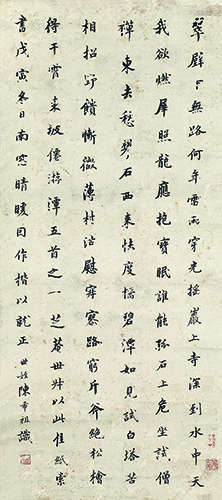 翠壁下無路何年雷雨穿光搖巖上寺深到水中天
我欲燃犀照龍應抱寶眠誰能孤石上危坐試僧
禪東去愁攀石西來怯度橋碧潭如見試白塔苦
相招野饋慚微薄村沽慰寂寥路窮斤斧絕松檜
得干霄東坡僊游潭五首之一芝菴世叔以此佳紙索
書戊寅冬日南窓晴暖因作楷以就正世姪陳希祖識